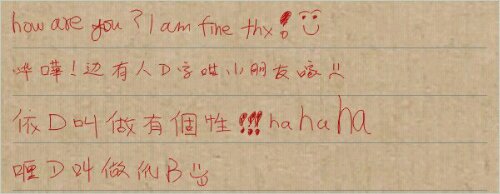 how are you? I am fine thx!
哗嘩!边有人D字咁小朋友㗎!!
依D叫做有個性!!! ha ha ha
喱D叫做低B